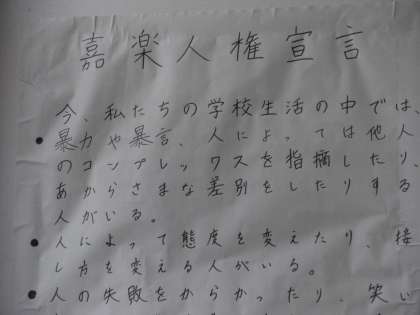 嘉楽人権宣言
今、私たちの学校生活の中では、
●暴力や暴言、人によっては他人
のコンプレックスを指摘したり、
あからさまな差別をしたりする
人がいる。
●人によって態度を変えたり、接
し方を変える人がいる。
●人の失敗をからかったり、笑い